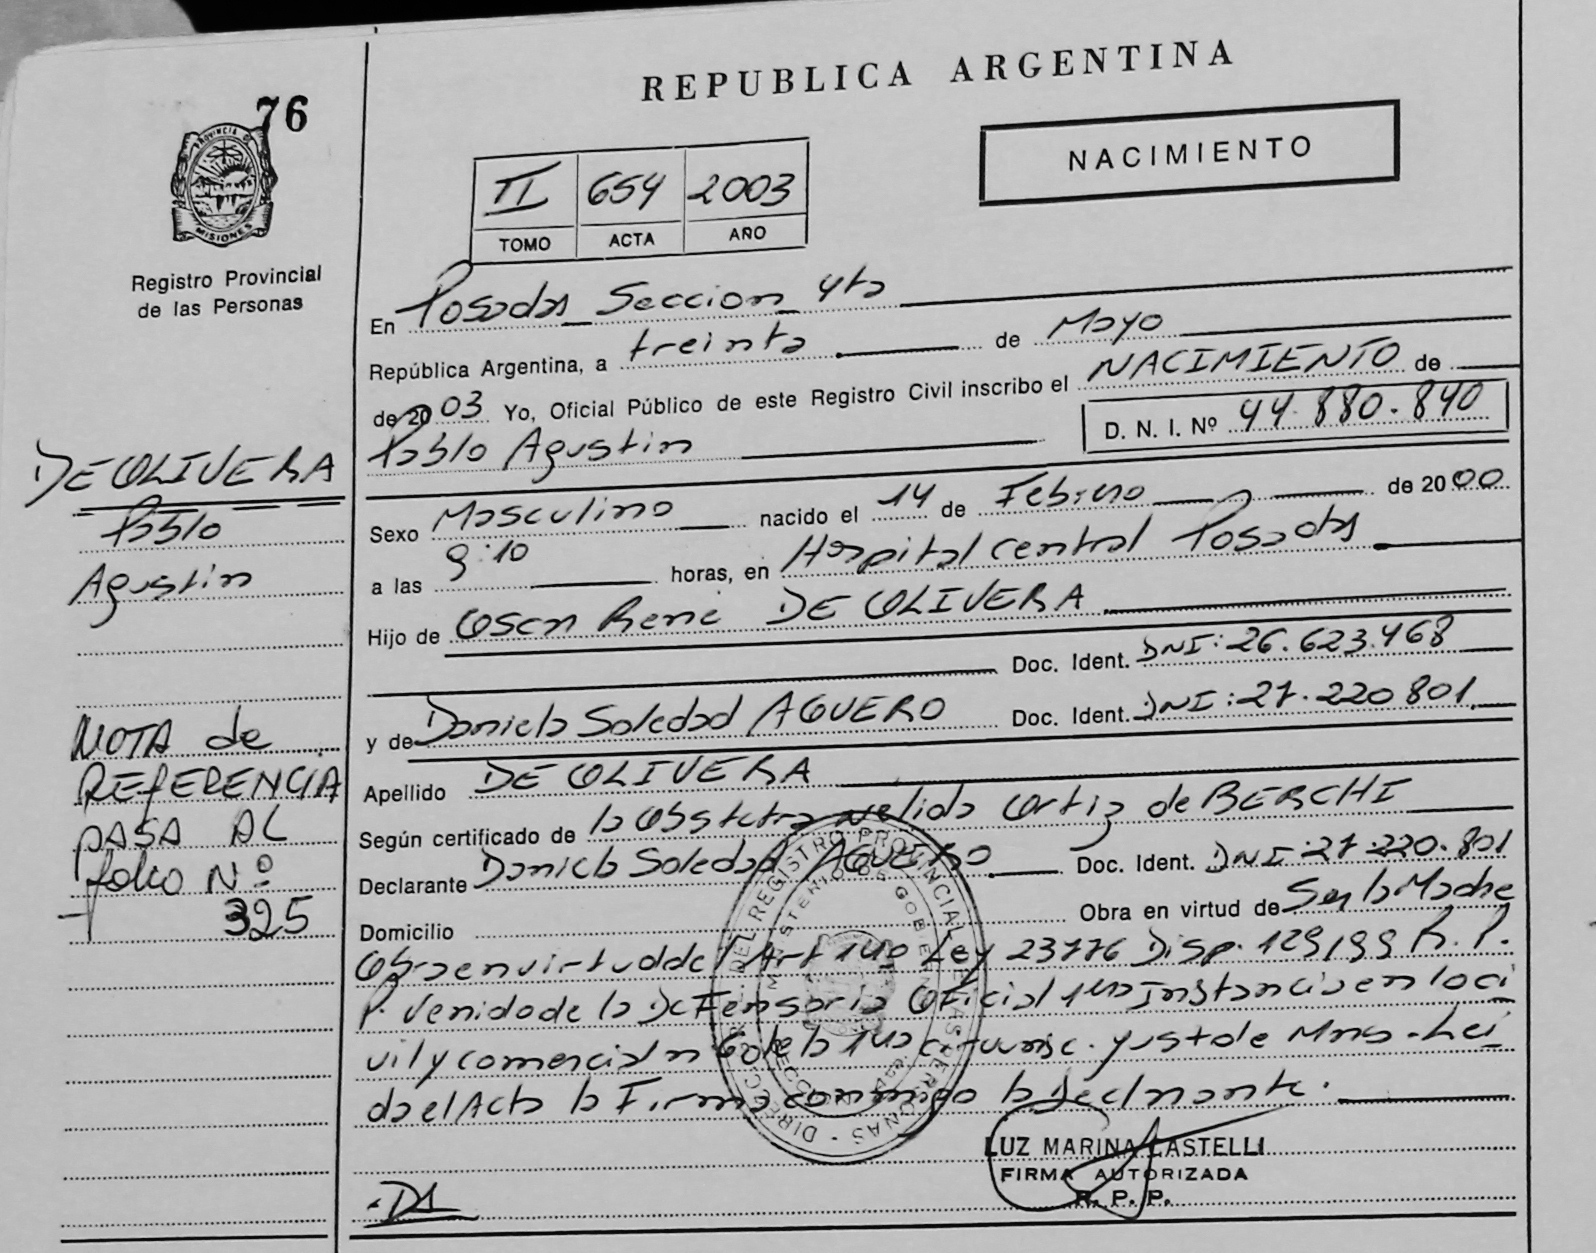 76
PROVINCIA DE
MISIONES
Registro Provincial
de las Personas
REPUBLICA ARGENTINA
NACIMIENTO
II 654 2003
TOMO ACTA AÑO
En Posadas Seccion 4ta
República Argentina, a treinta de Mayo
de 2003 Yo, Oficial Público de este Registro Civil inscribo el NACIMIENTO de
Pablo Agustin D. N. I. Nº 44.880.840
DE OLIVERA
Pablo
Agustin
Sexo Masculino nacido el 14 de Febrero de 2000
a las 9:10 horas, en Hospital Central Posadas
Hijo de Oscar René DE OLIVERA
Doc. Ident. DNI: 26.623.468
y de Daniela Soledad AGUERO Doc. Ident. DNI: 27.220801
Apellido DE OLIVERA
Según certificado de la Obstetra Nelida Ortiz de BERCHI
Declarante Daniela Soledad AGUERO Doc. Ident. DNI: 27.220.801
Domicilio Obra en virtud de Ser la Madre
Obra en virtud del Art 1ro Ley 23776 Disp. 129/99 R.P.
P. Venido de la Defensoria Oficial 1ra Instancia en lo ci
vil y comercial n 6 de la 1ra circunsc. Just de Mnes - Lei
da el Acta la Firma conmigo la declarante.
NOTA de
REFERENCIA
PASA AL
folio Nº
325
LUZ MARINA CASTELLI
FIRMA AUTORIZADA
R. P. P.